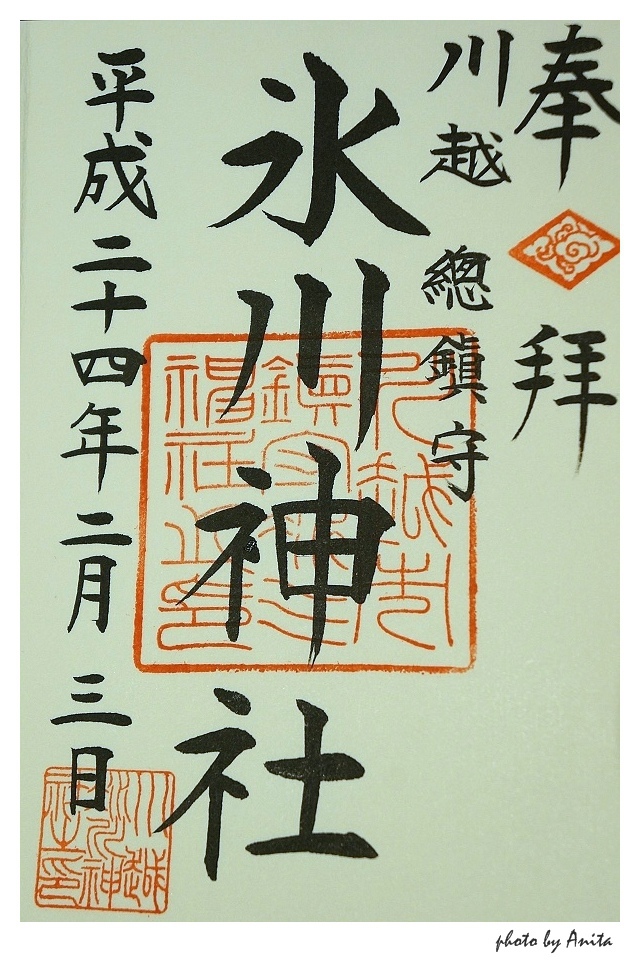 奉拝
川越 總鎮守
氷川神社
平成二十四年二月三日
photo by Anita